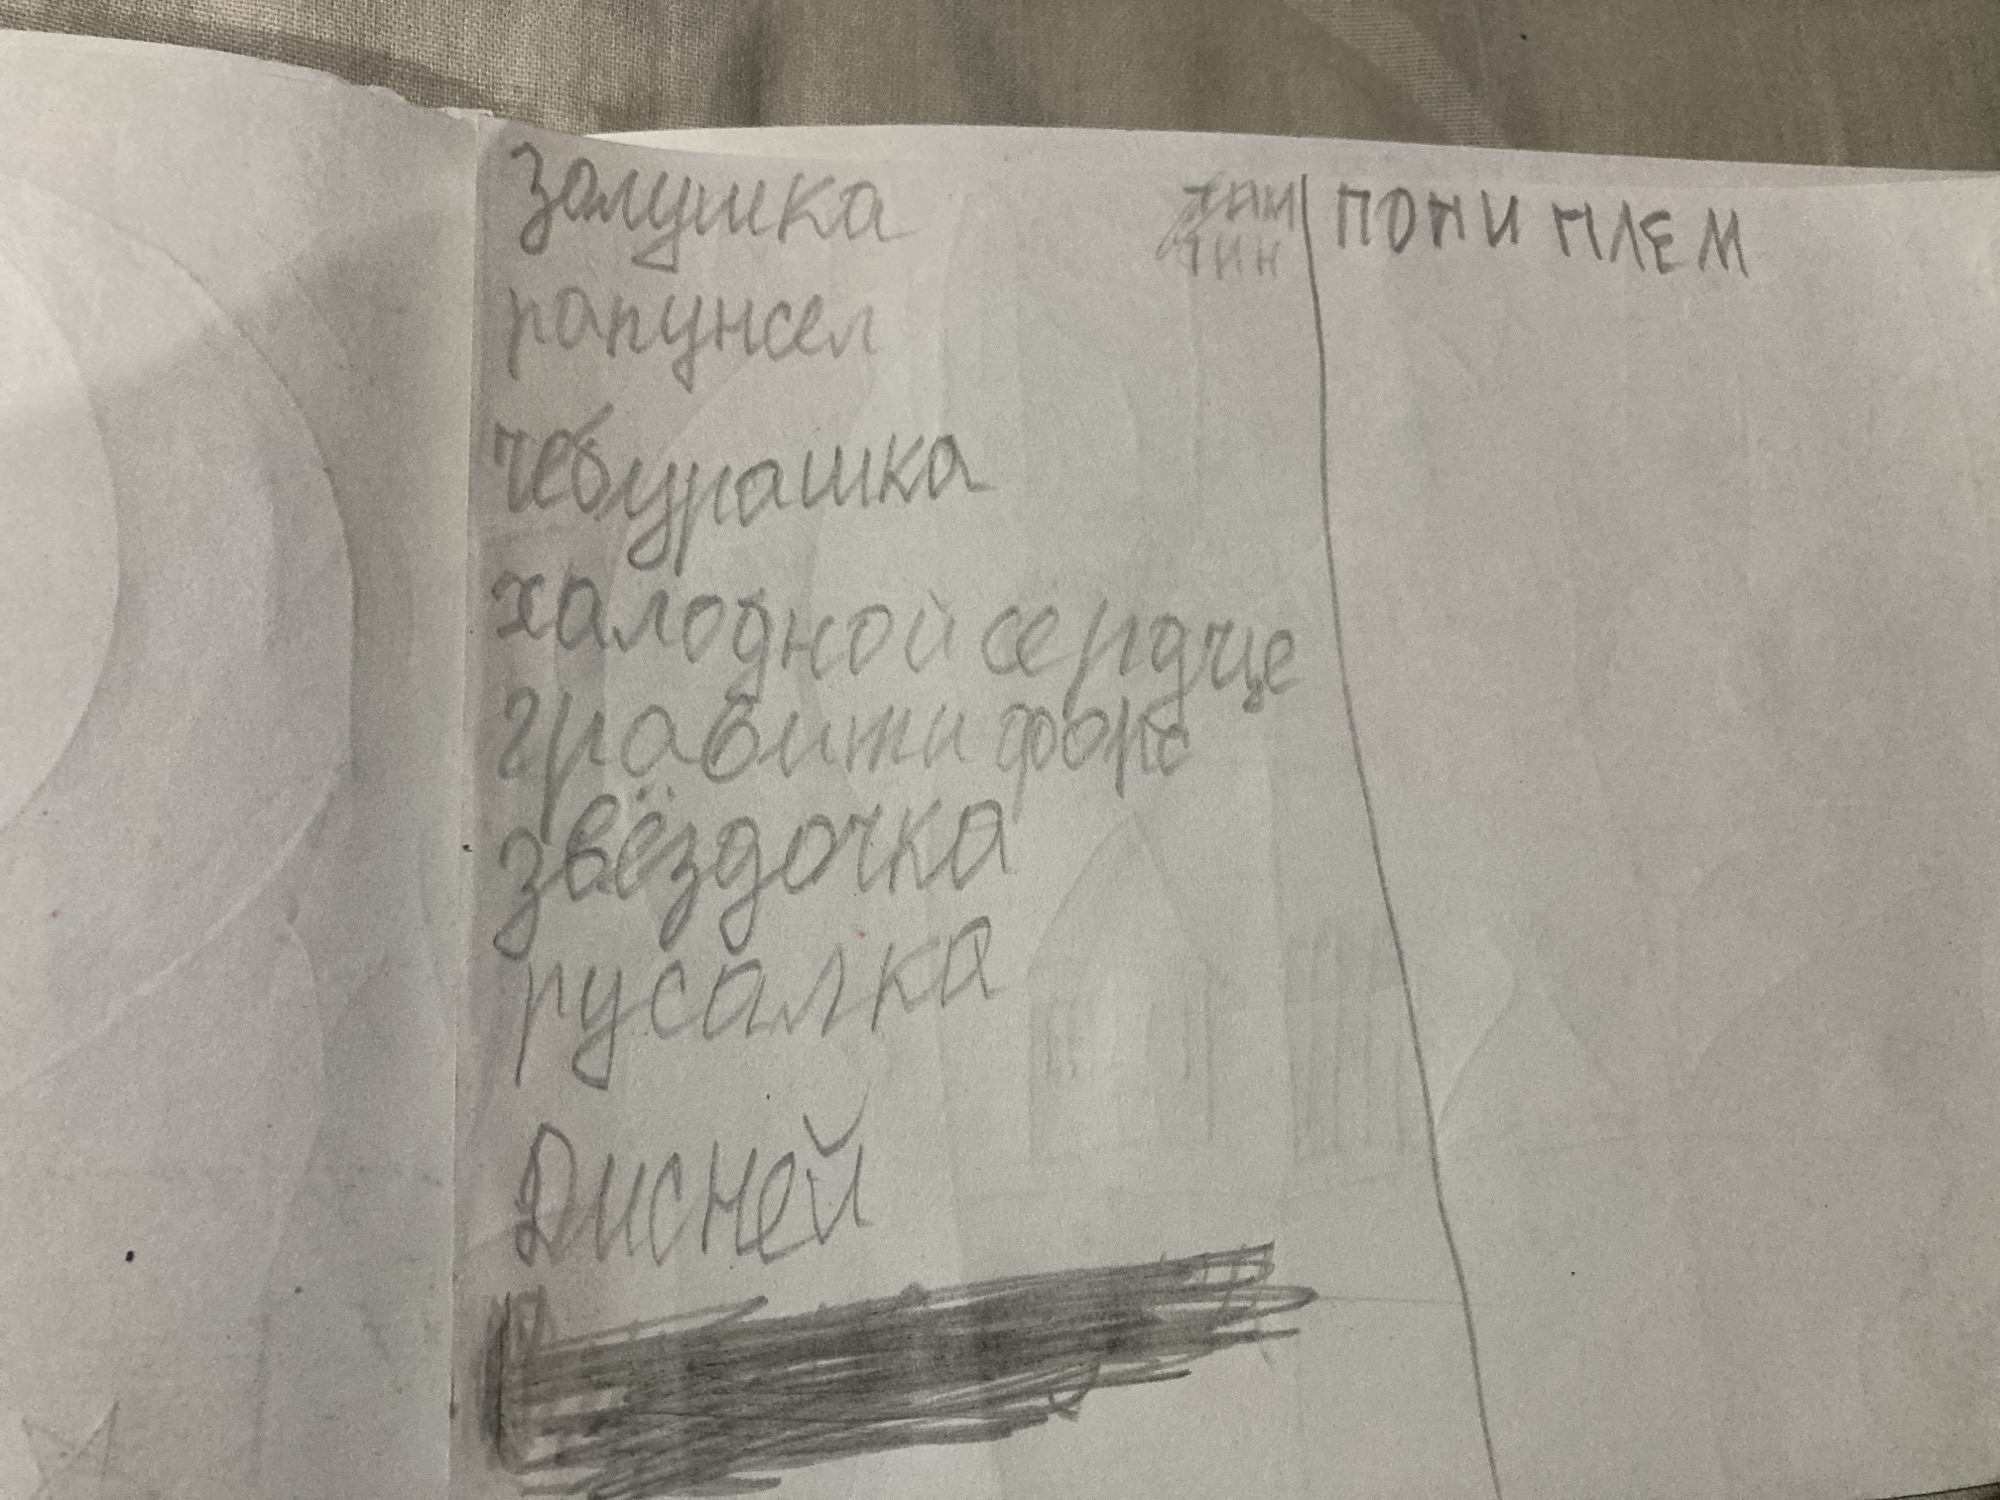 золушка
рапунсел
чебурашка
халодной сердце
гравити фолс
звёздочка
русалка
Дисней
пони плем